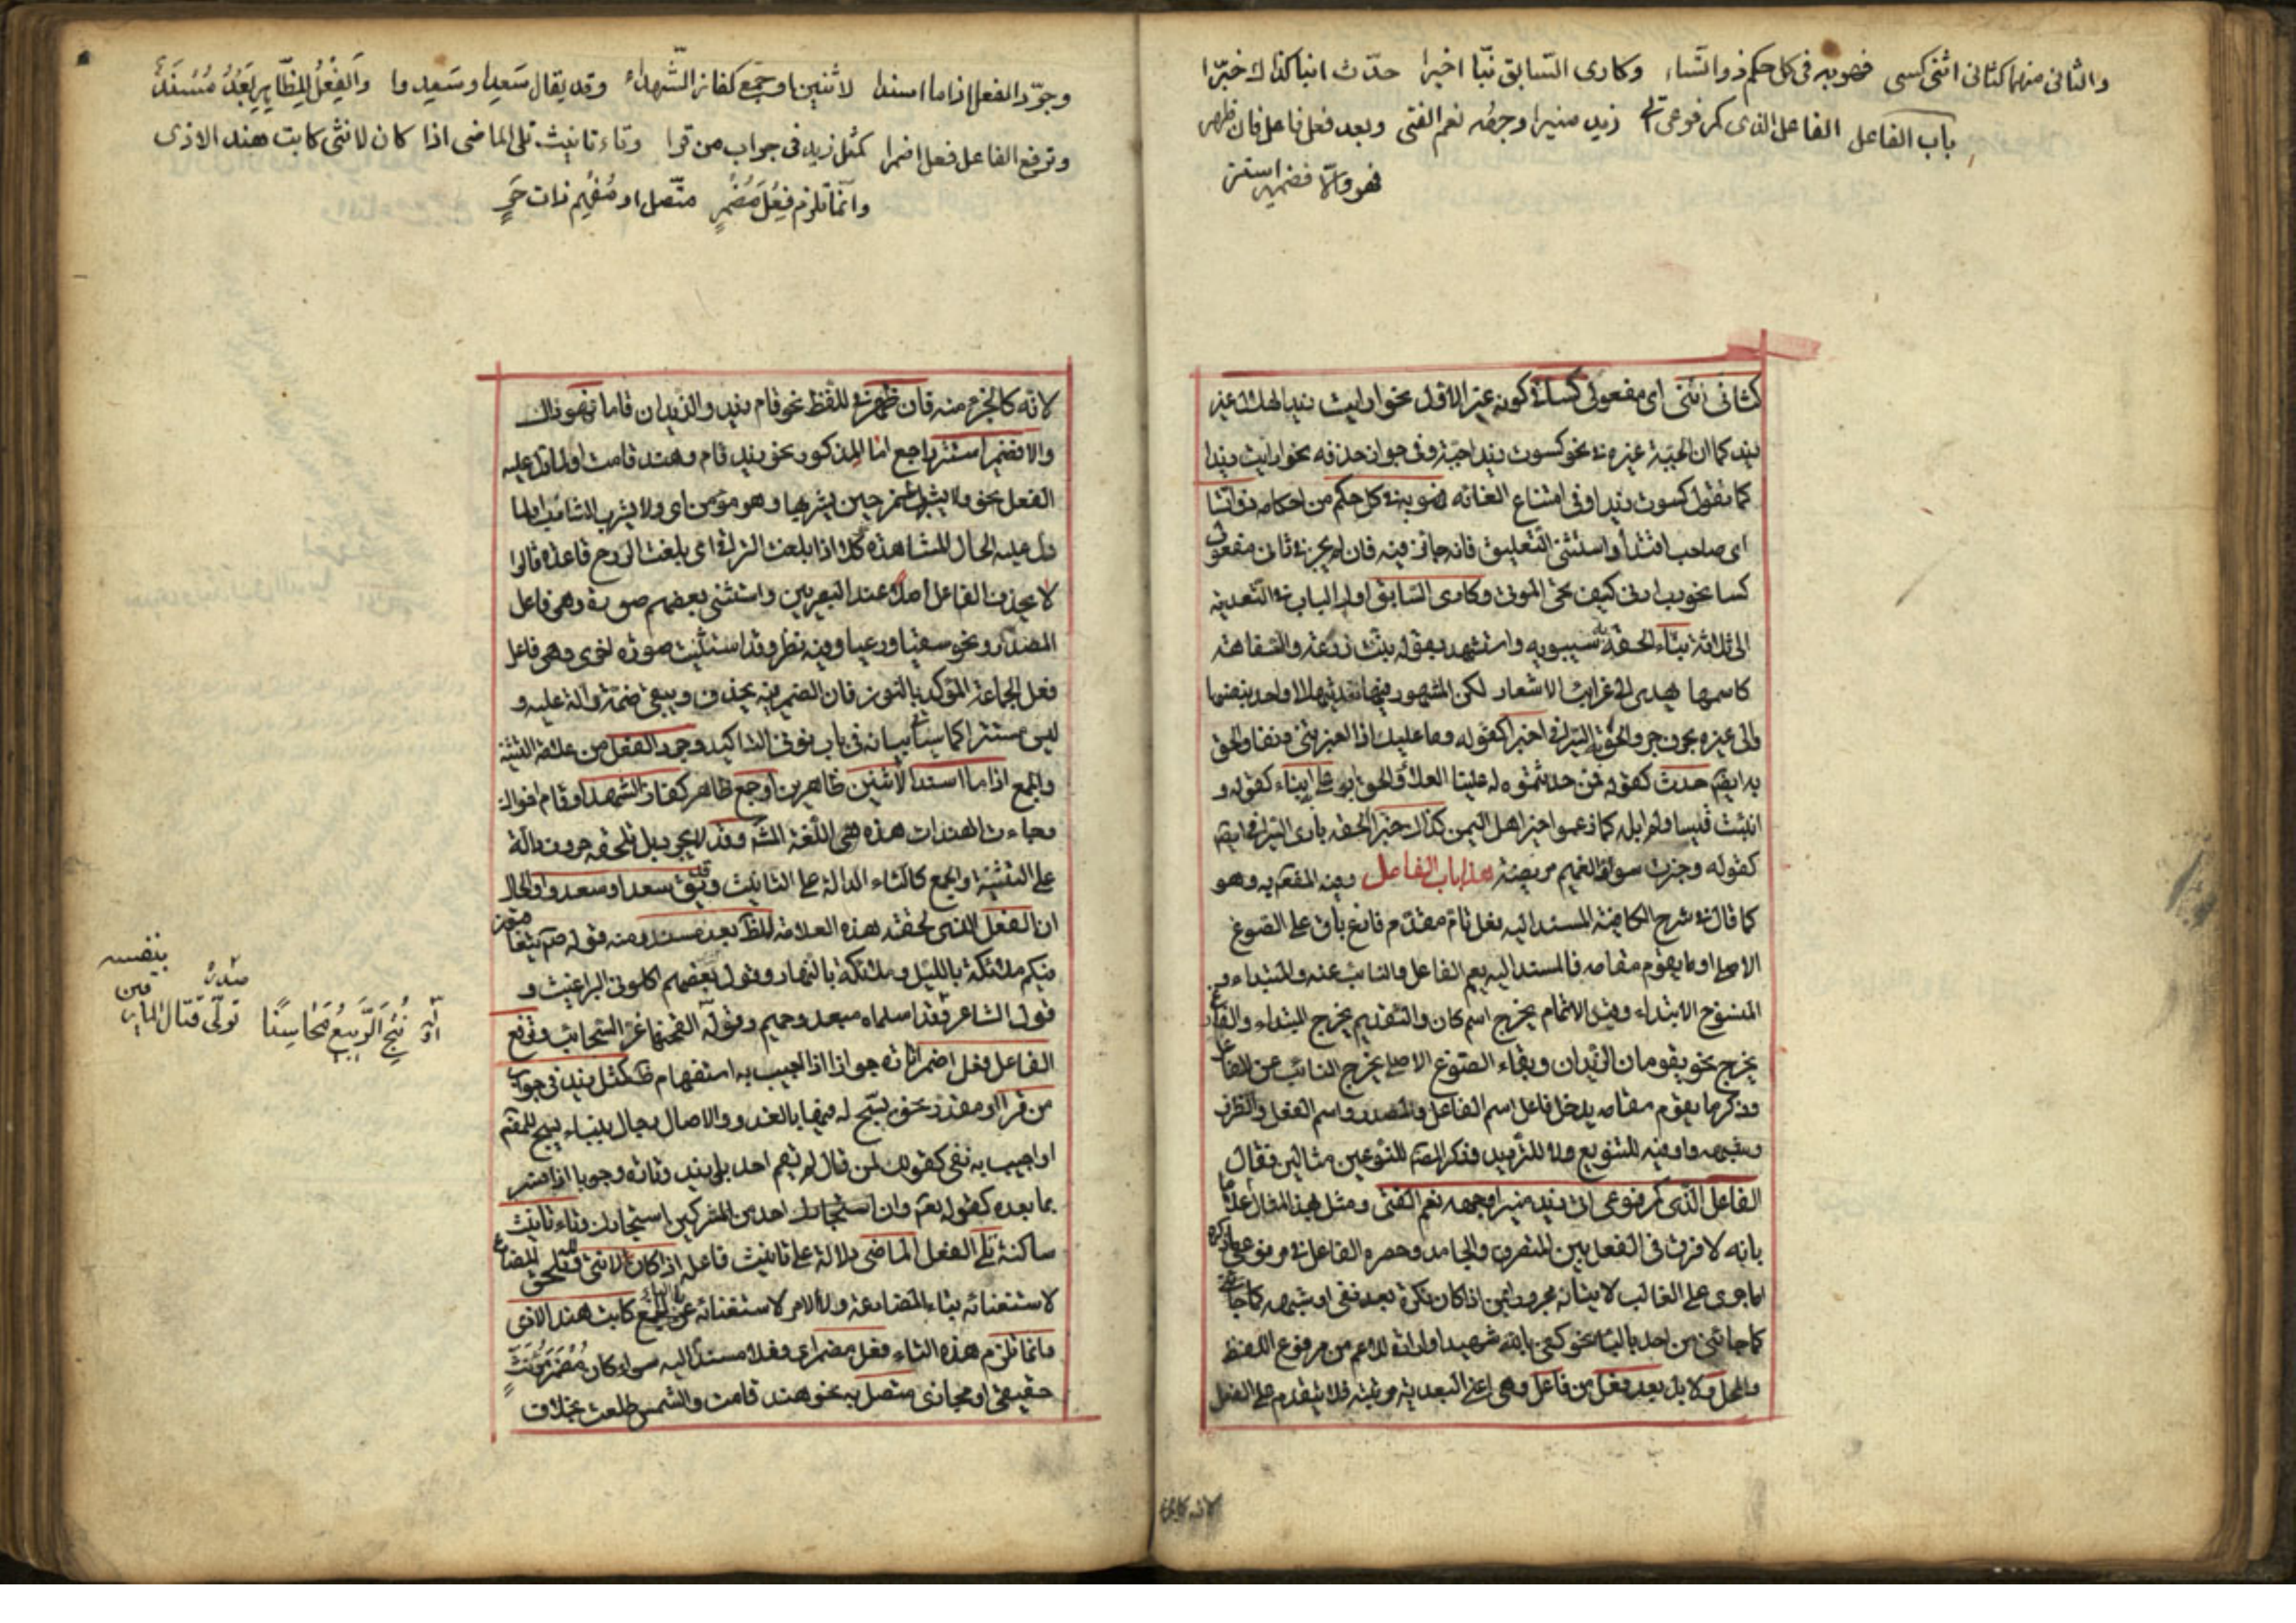 والثانى منهما كثانى اثنى كسى فهو به فى كل حكم ذو ائتساء وكارى السابق نبّا اخبرا حدّث انبا كذاك خبّرا
باب الفاعل الفاعل الذى كمرفوعى اتى زيد منيرا وجهه نعم الفتى وبعد فعل فاعل فان ظهر
فهو والّا فضمير استتر
كثانى اثنى اى مفعولى كسا فى كونه غير الاول نحو اريت زيدا الهلال غير
زيد كما ان الجبة غيره فى نحو كسوت زيدا جبة وفى جواز حذفه نحو اريت زيدا
كما تقول كسوت زيدا وفى امتناع الغائه فهو به فى كل حكم من احكامه ذو ائتسا
اى صاحب اقتداء واستثنى التعليق فانه جائز فيه فان لم يجز فى ثانى مفعولى
كسا نحو رب ارنى كيف تحى الموتى وكارى السابق اول الباب فى التعدية
الى ثلاثة نبّاء الحقه به سيبويه واستشهد بقوله نبئت زرعة والسفاهة
كاسمها يهدى الى غرائب الاشعار لكن المشهور فيها تعديتها الى واحد بنفسها
والى غيره بحرف جر والحق به السيرافى اخبرا كقوله وما عليك اذا اخبرتنى دنفا والحق
به ايضا حدث كقوله فمن حدثتموه له علينا العلاء والحق ابو على انباء كقوله و
انبئت قيسا ولم ابله كما زعموا خير اهل اليمن كذاك خبرا الحقه بارى السيرافى ايضا
كقوله وخبرت سوداء الغميم مريضة هذا باب الفاعل وفيه المفعول به وهو
كما قال فى شرح الكافية المسند اليه فعل تام مقدم فارغ باق على الصوغ
الاصلى او ما يقوم مقامه فالمسند اليه يعم الفاعل والنائب عنه والمبتداء و
المنسوخ الابتداء وقيد التمام يخرج اسم كان والتقديم يخرج المبتداء والفارغ
يخرج نحو يقومان الزيدان وبقاء الصوغ الاصلى يخرج النائب عن الفاعل
وذكر ما يقوم مقامه يدخل فاعل اسم الفاعل والمصدر واسم الفعل والظرف
وشبهه واو فيه للتنويع لا للترديد وذكر المص للنوعين مثالين فقال
الفاعل الذى كمرفوعى اتى زيد منيرا وجهه نعم الفتى ومثل بهذا المثال اعلاما
بانه لا فرق فى الفعل بين المتصرف والجامد وحصره الفاعل فى مرفوعى ما ذكره
اما جرى على الغالب لاتيانه مجرورا بمن اذا كان نكرة بعد نفى او شبهه
كما جائنى من احد وبالباء نحو كفى بالله شهيدا او ارادة للاعم من مرفوع اللفظ
والمحل ولا بد بعد فعل من فاعل وهى اعنى البعدية مرتبته فلا يتقدم على الفعل
لانه كالجزء
وجرّد الفعل اذا ما اسندا لاثنين او جمع كفاز الشهداء وقد يقال سَعِدا وسَعِدوا والفِعْلُ للظّاهِرِ بَعْدُ مُسْنَدٌ
وترفع الفاعل فعل اضمرا كمثل زيد فى جواب من قرا وتاء تانيث تلى الماضى اذا كان لانثى كابت هند الاذى
وانّما تلزم فِعْلَ مُضْمَرٍ متّصل او مُفْهِم ذات حَرٍ
لانه كالجزء منه فان ظهر فى اللفظ نحو قام زيد والزيدان قاما فهو ذاك
والا فضمير استتر راجع اما لمذكور نحو زيد قام وهند قامت او لما دل عليه
الفعل نحو ولا يشرب الخمر حين يشربها وهو مؤمن اى ولا يشرب الشارب او لما
دل عليه الحال المشاهدة كلا اذا بلغت التراقى اى بلغت الروح قاعدة قالوا
لا يحذف الفاعل اصلا عند البصريين واستثنى بعضهم صورة وهى فاعل
المصدر نحو سقيا ورعيا وفيه نظر وقد استثنيت صورة اخرى وهى فاعل
فعل الجماعة المؤكد بالنون فان الضمير فيه يحذف ويبقى ضمة دالة عليه و
ليس مستترا كما سياتى بيانه فى باب نونى التاكيد وجرد الفعل من علامة التثنية
والجمع اذا ما اسندا لاثنين ظاهرين او جمع ظاهر كفاز الشهدا وقام اخواك
وجاءت الهندات هذه هى اللغة المش وقد لا يجرد بل تلحقه حروف دالة
على التثنية والجمع كالتاء الدالة على التانيث ويق سعدا وسعدوا والحال
ان الفعل الذى لحقته هذه العلامة للظاهر بعد مسند ومنه قوله ص يتعاقبون
فيكم ملئكة بالليل وملئكة بالنهار وقول بعضهم اكلونى البراغيث و
قول الشاعر وقد اسلماه مبعد وحميم وقوله القحنها غر السحائب وترفع
الفاعل فعل اضمرا تارة جوازا اذا اجيب به استفهام ظ كمثل زيد فى جواب
من قرا او مقدر نحو يسبح له فيها بالغدو والاصال رجال ببناء يسبح للمفعول
او اجيب به نفى كقولك لمن قال لم يقم احد بلى زيد وتارة وجوبا اذا فسر
بما بعده كقوله تعالى وان احد من المشركين استجارك وتاء تانيث
ساكنة تلى الفعل الماضى دلالة على تانيث فاعله اذا كان لانثى ولا تلحق المضارع
لاستغنائه بتاء المضارعة ولا الامر لاستغنائه بالياء كابت هند الاذى
وانما تلزم هذه التاء فعل مضمر اى فعلا مسندا اليه سواء كان مضمر مؤنث
حقيقى او مجازى متصل به نحو هند قامت والشمس طلعت بخلاف
اوّله نُتِجَ الرَّبيعُ مَحَاسِنًا
صدره تولّى قتال المارقين بنفسه